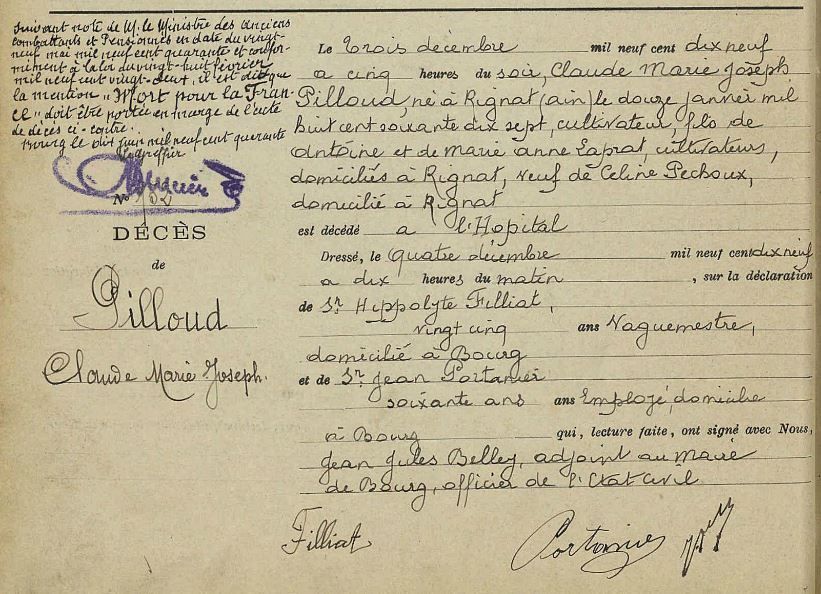 Suivant note de M. le Ministre des Anciens
combattants et Pensionnés en date du vingt-
neuf mai mil neuf cent quarante et confor-
mément à la loi du vingt-huit février
mil neuf cent vingt-deux, il est dit que
la mention "Mort pour la Fran-
ce" doit être portée en marge de l'acte
de décès ci-contre.
Bourg le dix juin mil neuf cent quarante
Le greffier
No 702
DÉCÈS
de
Pilloud
Claude Marie Joseph.
Le trois décembre mil neuf cent dix neuf
a cinq heures du soir, Claude Marie Joseph
Pilloud, né à Rignat (ain) le douze janvier mil
huit cent soixante dix sept, cultivateur, fils de
Antoine et de Marie Anne Laprat, cultivateurs,
domiciliés à Rignat, veuf de Celine Pechoux,
domicilié à Rignat
est décédé a l'Hopital
Dressé, le quatre décembre mil neuf cent dix neuf
a dix heures du matin , sur la déclaration
de Sr. Hippolyte Filliat,
vingt cinq ans Vaguemestre,
domicilié à Bourg
et de Sr. Jean Portanier
soixante ans ans Employé, domicilié
à Bourg qui, lecture faite, ont signé avec Nous,
Jean Jules Belley, adjoint au Maire
de Bourg, officier de l'Etat Civil
Filliat Portanier